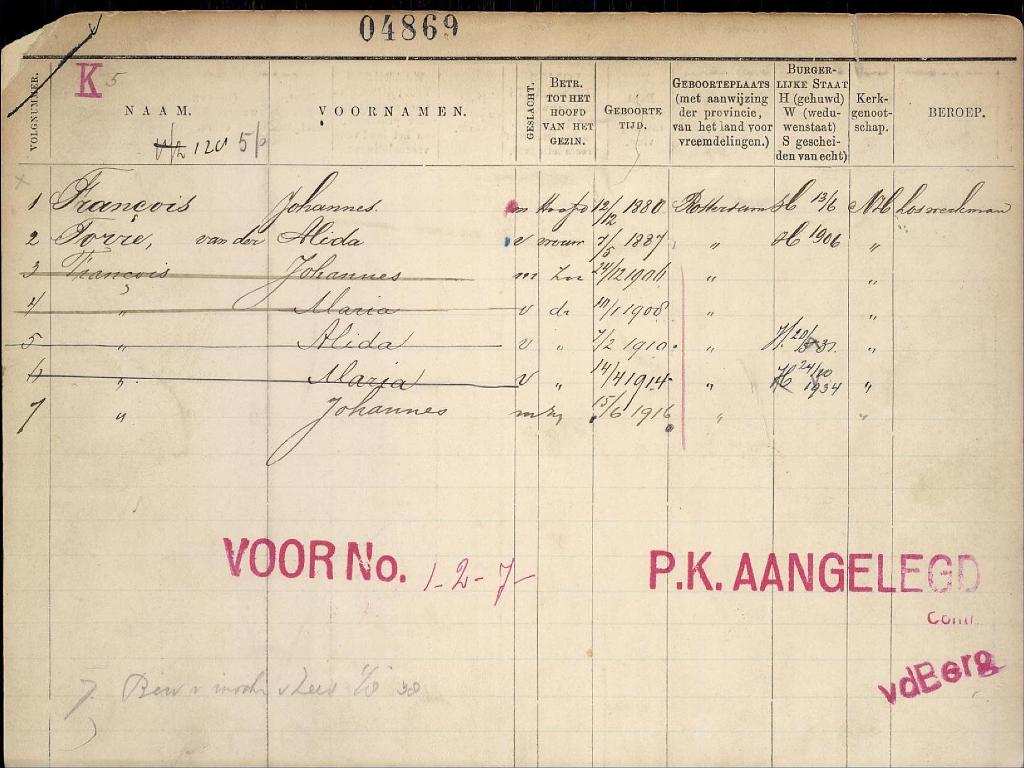 04869
K 5
VOLGNUMMER. NAAM. VOORNAMEN. GESLACHT. BETR. TOT HET HOOFD VAN HET GEZIN. GEBOORTE TIJD. GEBOORTEPLAATS (met aanwijzing der provincie, van het land voor vreemdelingen.) BURGERLIJKE STAAT H (gehuwd) W (weduwenstaat) S gescheiden van echt) Kerkgenootschap. BEROEP.
120 5/p
1 François Johannes. m Hoofd 12/12 1880 Rotterdam H 13/6 NH Los werkman
2 Torre, van der Alida v vrouw 7/5 1887 „ H 1906 „
3 François Johannes m Zn 24/12 1906 „ „
4 „ Maria v dr 10/1 1908 „ „
5 „ Alida v „ 7/2 1910 „ H. „
6 „ Maria v „ 14/4 1914 „ H 24/10 1934 „
7 „ Johannes m Zn 15/6 1916 „ „
VOOR No. 1-2-7 P.K. AANGELEGD
Contr.
vdBerg
7